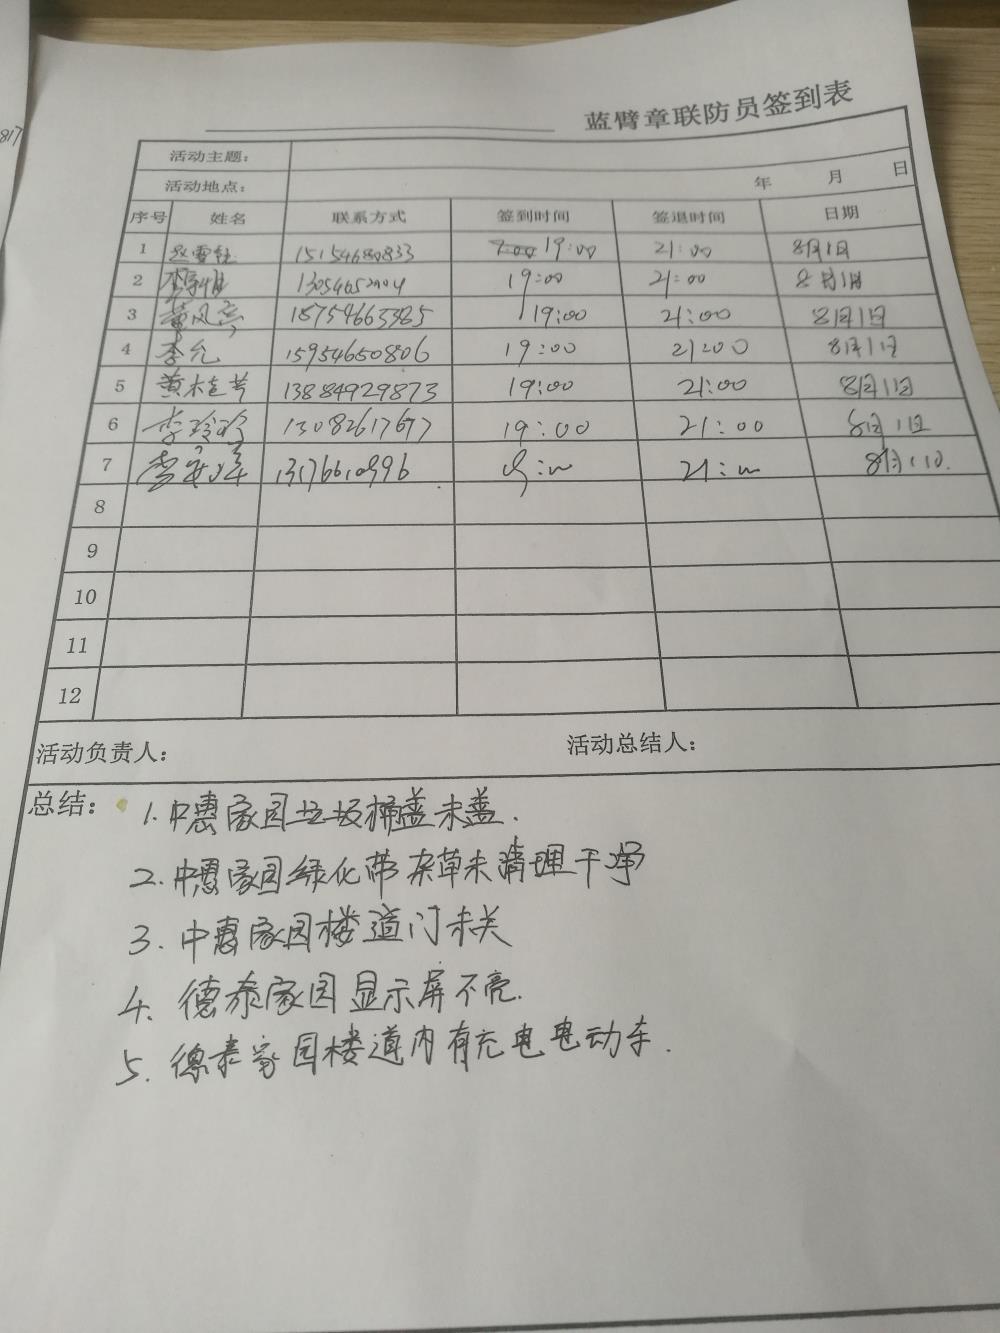 817
蓝臂章联防员签到表
活动主题：
活动地点： 年 月 日
序号 姓名 联系方式 签到时间 签退时间 日期
1 15154680833 19:00 21:00 8月1日
2 19:00 21:00 8月1日
3 黄风亮 18754663385 19:00 21:00 8月1日
4 李允 15954650806 19:00 21:00 8月1日
5 黄桂芳 13884929873 19:00 21:00 8月1日
6 李玲玲 13082617677 19:00 21:00 8月1日
7 21: 8月1日.
8
9
10
11
12
活动负责人： 活动总结人：
总结：1.中惠家园垃圾桶盖未盖.
2.中惠家园绿化带杂草未清理干净
3.中惠家园楼道门未关
4.德泰家园显示屏不亮.
5.德泰家园楼道内有充电电动车.